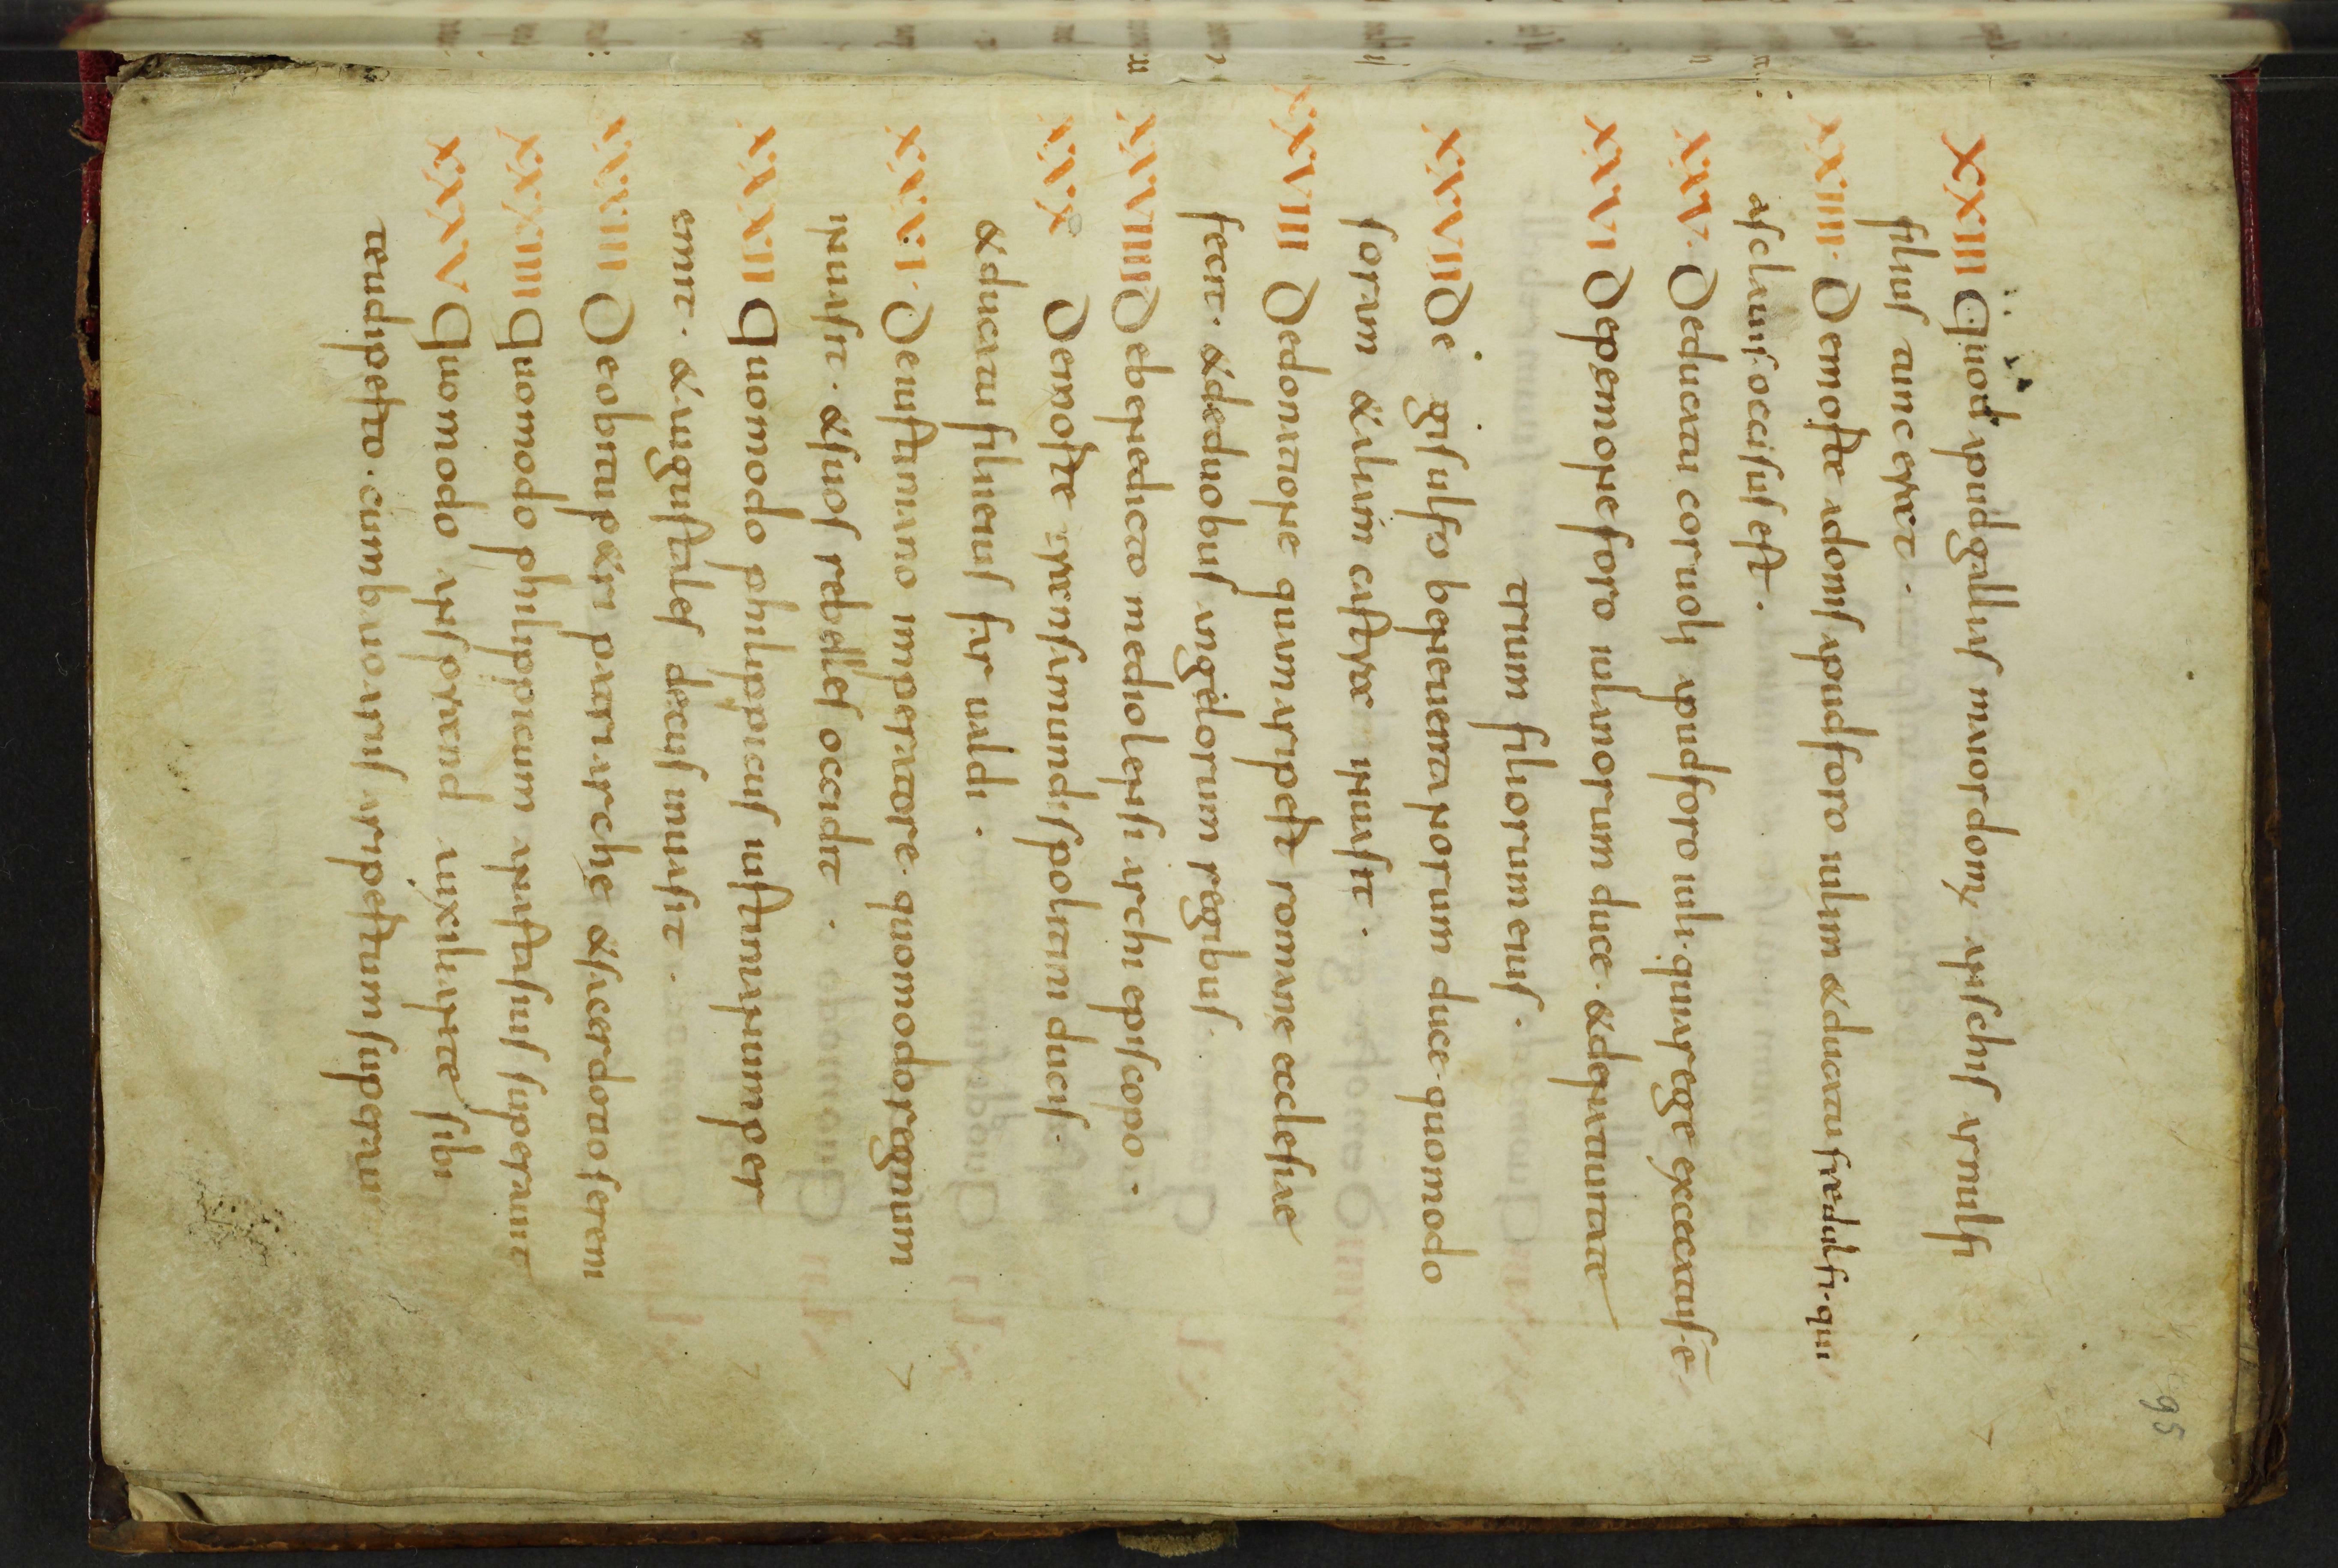 95
XXIII Quod apud gallus maiordomꝫ anschis arnulfi
filius tunc erat.
XXIIII. De morte adonis apud foro iulim & ducatu fredulfi. qui
asclauis occisus est.
XXV. De ducatu coruoli apud foro iuli. qui arege excecatus ē
XXVI De pemone foro iulanorum duce. & denatiuitate
trium filiorum eius.
XXVII De gisulfo beneuentanorum duce. quomodo
soram & alia in castra inuasit.
XXVIII De donatione quam aripert romane ecclesiae
fecit. & de duobus angelorum regibus.
XXVIIII De benedicto mediolensi archi episcopo.
XXX De morte transamundi spolitani ducis.
& ducatu filii eius faruualdi.
XXXI. De iustiniano imperatore. quomodo regnum
inuasit. & suos rebelles occidit.
XXXII Quomodo philippicus iustinianum per
emit. & augustales decus inuasit.
XXXIII De obitu petri patriarche & sacerdotio sereni
XXXIIII Quomodo philippicum anastasius superauit
XXXV Quomodo ansprand auxiliante sibi
teudiperto. cum baioariis aripertum superauit